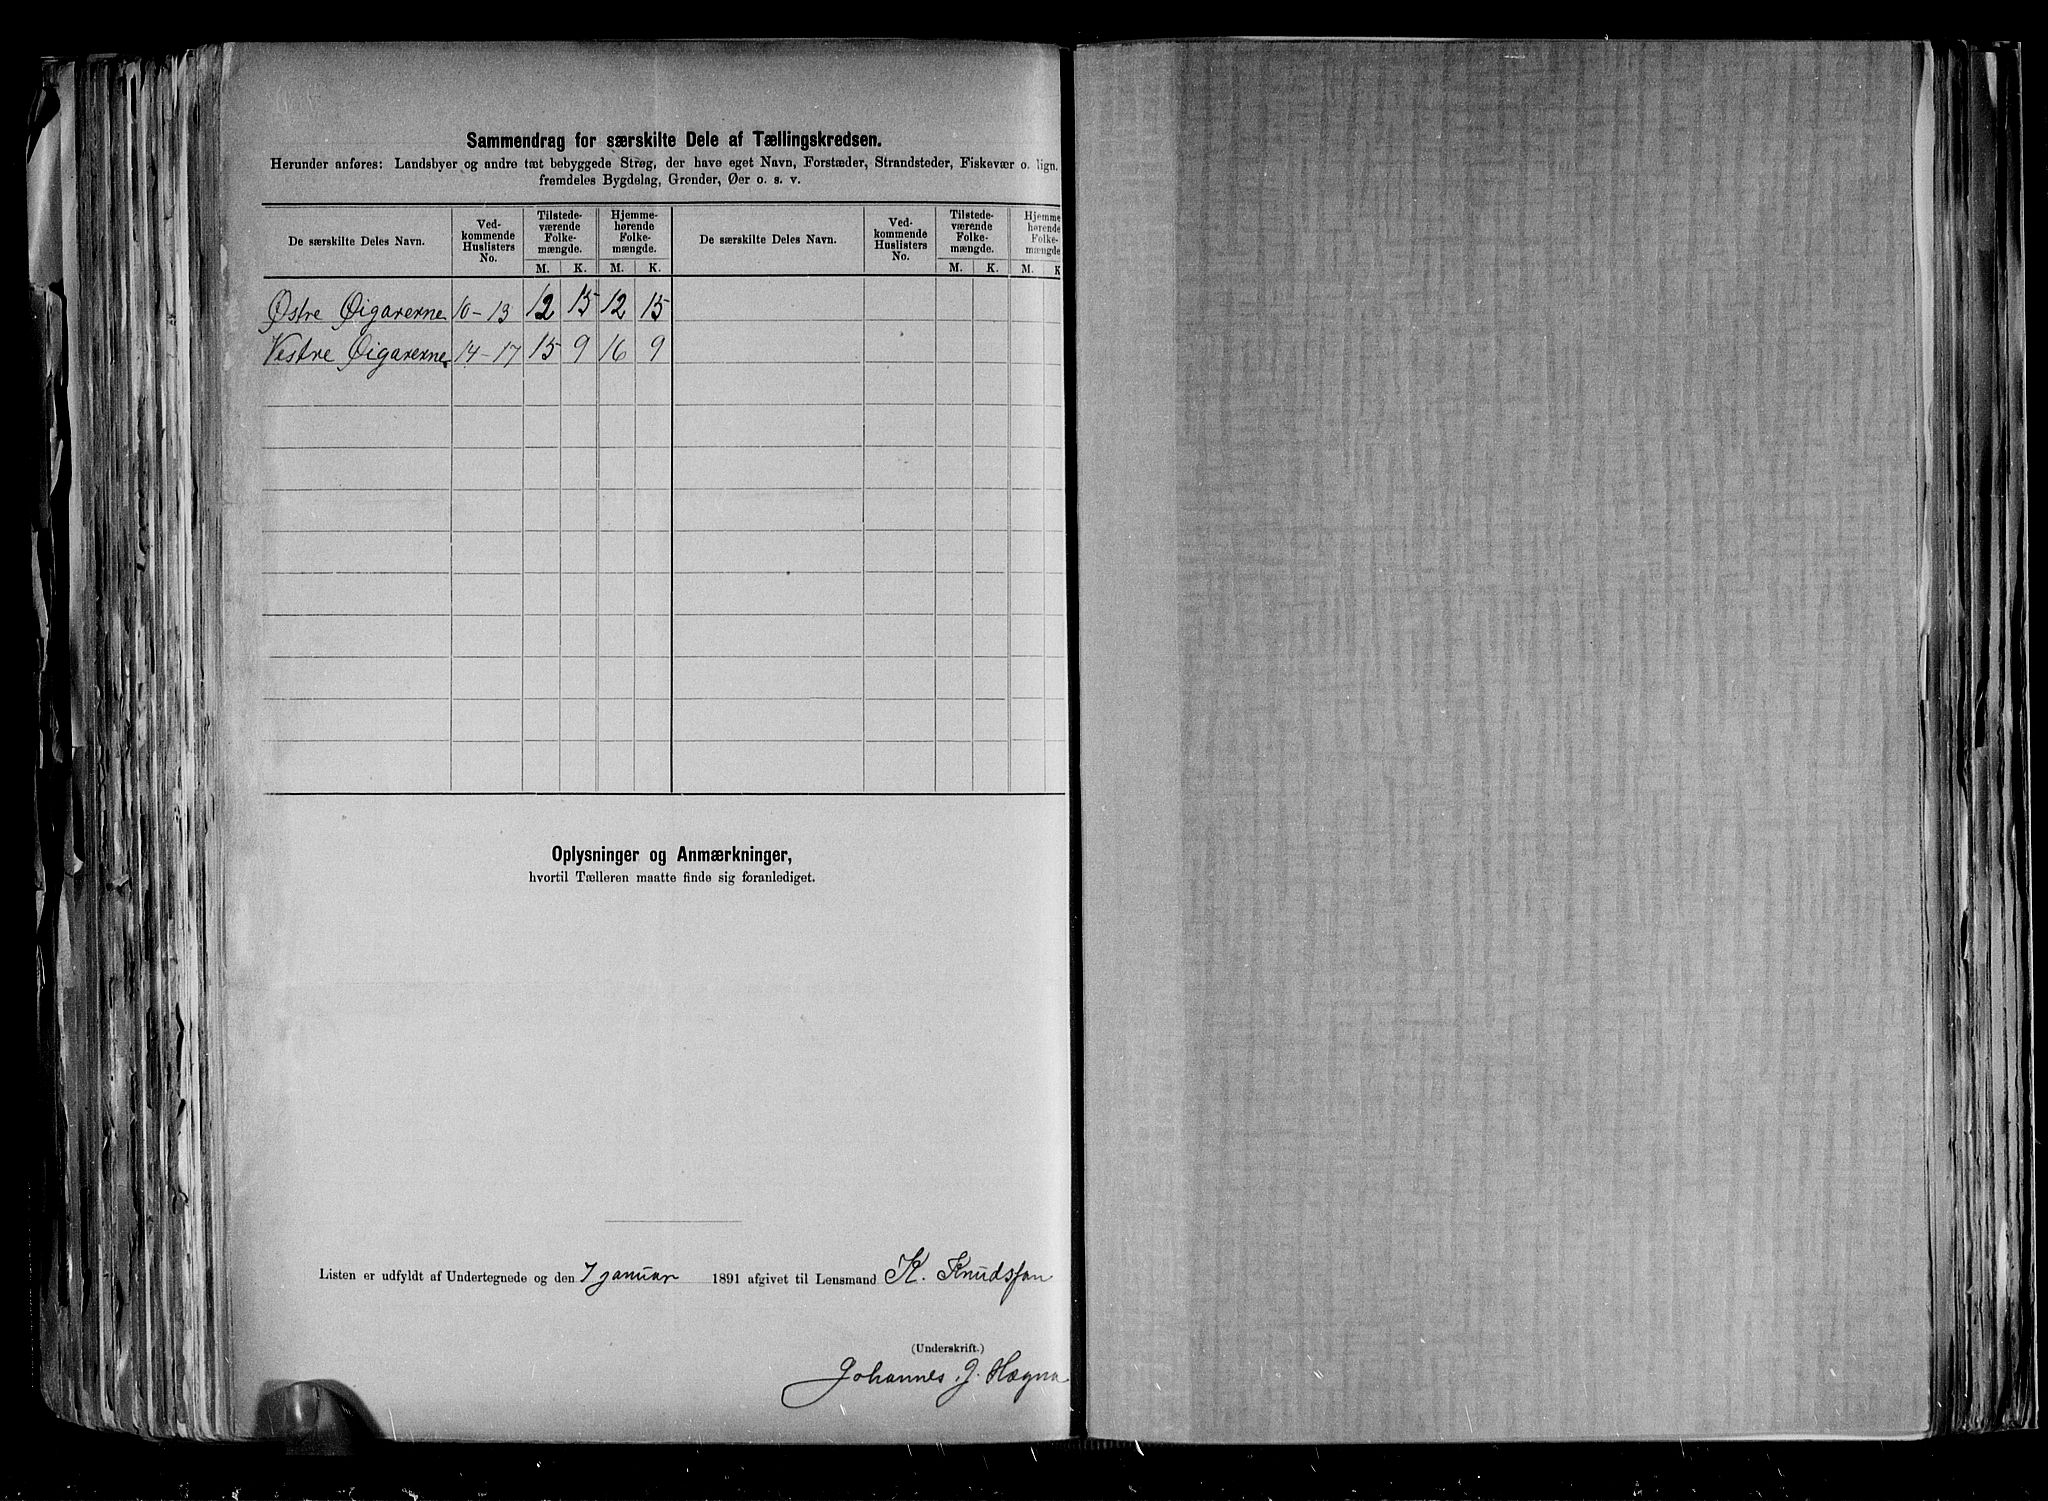 Sammendrag for særskilte Dele af Tællingskredsen.
Herunder anføres: Landsbyer og andre tæt bebyggede Strøg, der have eget Navn, Forstæder, Strandsteder, Fiskevær o. lign.
fremdeles Bygdelag, Grender, Øer o. s. v.
De særskilte Deles Navn. Ved-kommende Huslisters No. Tilstede-værende Folke-mængde. Hjemme-hørende Folke-mængde. De særskilte Deles Navn. Ved-kommende Huslisters No. Tilstede-værende Folke-mængde. Hjemme hørende Folke-mængde
M. K. M. K. M. K. M. K
Østre Øigarerne 10-13 12 15 12 15
Vestre Øigarerne 14-17 15 9 16 9
Oplysninger og Anmærkninger,
hvortil Tælleren maatte finde sig foranlediget.
Listen er udfyldt af Undertegnede og den 7 januar 1891 afgivet til Lensmand K. Knudsson
(Underskrift.)
Johannes G. Hægna